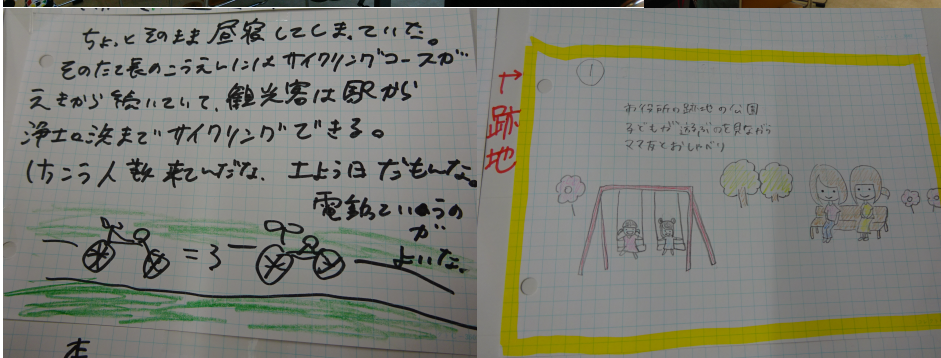 ちょっとそのまま昼寝してしまっていた。
そのたて長のこうえんにはサイクリングコースが
えきから続いていて、観光客は駅から
浄土ヶ浜までサイクリングできる。
けっこう人数来てんだな、土よう日だもんな。
電動っていうの
が
よいな。
本
↑跡地
①
お役所の跡地の公園
子どもが遊ぶのを見ながら
ママ友とおしゃべり